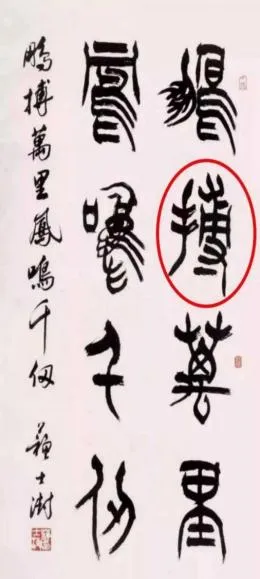 鵬搏萬里
鳳鳴千仞
鵬搏萬里鳳鳴千仞 蘇士澍